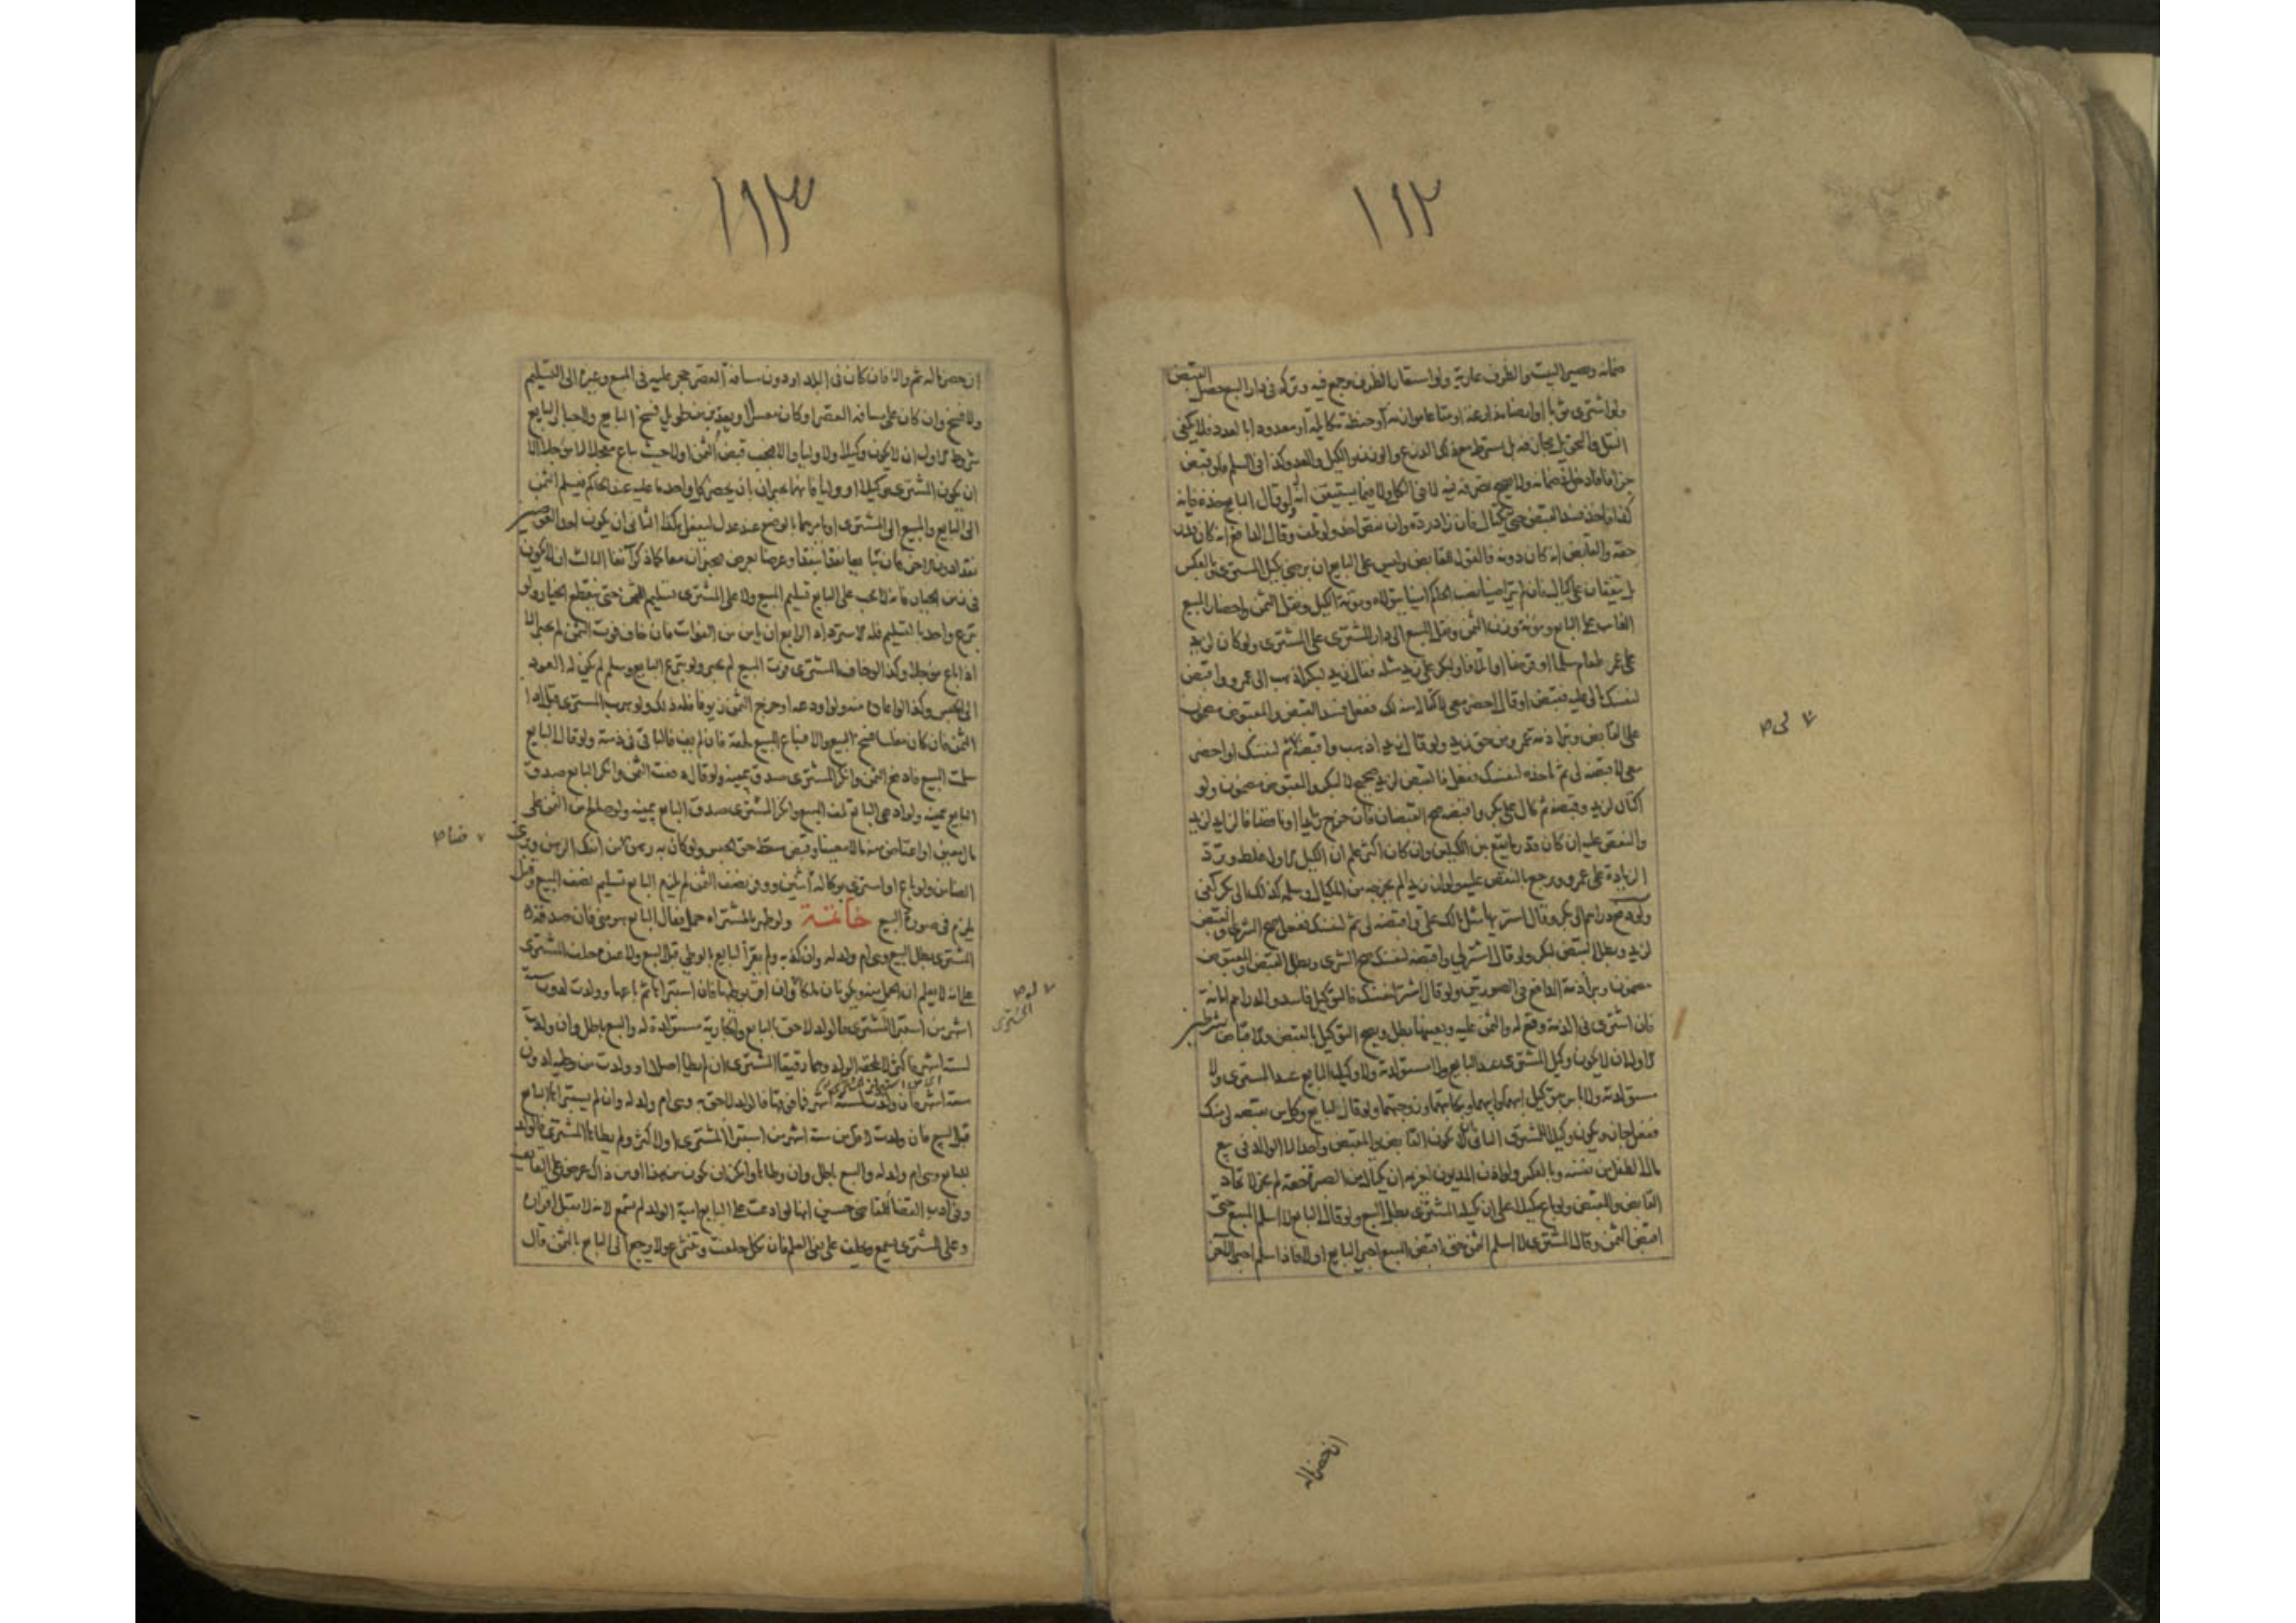 ١١٢
ضمانه ويصير البيت والظرف عارية ولو استعار الظرف وجمع فيه وتركه في دار البايع حصل القبض
ولو اشترى ثوبا او ارضا مذارعة او متاعا موازنة او حنطة مكايلة او معدودا بالعدد فلا يكفي
النقل والتحويل بل يشترط مع ذلك الذرع والوزن والكيل والعد وكذا في السلم فلو قبض
جزافا دخل في ضمانه ولا يصح تصرفه فيه لا في الكل ولا فيما يستيقن انه له ولو قال البايع خذه فانه
كذا فاخذ فسد القبض حتى يكتال فان زاد رده وان نقص اخذ ولو تلف وقال الدافع انه كان قدر
حقه والقابض انه كان دونه فالقول للقابض وليس على البايع ان يرضى بكيل المشتري ولا بالعكس
بل يتفقان على كيال فان لم يتراضيا نصب الحاكم امينا يتولاه ومؤنة الكيل ونقل الثمن واحضار المبيع
الغايب على البايع ومؤنة وزن الثمن ونقل المبيع الى دار المشتري على المشتري ولو كان لزيد
على عمرو طعام سلما او قرضا او اتلافا ولبكر على زيد مثله فقال زيد لبكر اذهب الى عمرو واقبض
لنفسك مالي عليه فقبض او قال احضر معي لاكتاله منه لك ففعل فسد القبض والمقبوض مضمون
على القابض وتبرا ذمة عمرو من حق زيد ولو قال زيد اذهب واقبضه لي ثم لنفسك او احضر
معي لاقبضه لي ثم تاخذه لنفسك ففعل فالقبض لزيد صحيح لا لبكر والمقبوض مضمون ولو
اكتال لزيد وقبضه ثم كال على بكر واقبضه صح القبضان فان خرج زايدا او ناقصا فالزايد لزيد
والنقص عليه ان كان قدر ما يقع بين الكيلين وان كان اكثر علم ان الكيل الاول غلط ويرد
الزيادة على عمرو ويرجع بالنقص عليه ولو ان زيدا لم يخرجه من المكيال وسلمه كذلك الى بكر كفى
ولو دفع دراهم الى بكر وقال اشتر بها مثل مالك علي واقبضه لي ثم لنفسك ففعل صح الشرى والقبض
لزيد وبطل القبض لبكر ولو قال اشتر لي واقبضه لنفسك صح الشرى وبطل القبض والمقبوض
مضمون وبرا ذمة الدافع في الصورتين ولو قال اشتر لنفسك فالتوكيل فاسد والدراهم امانة
فان اشترى في الذمة وقع له والثمن عليه وبعينها بطل ويصح التوكيل بالقبض والاقباض بشرطين
الاول ان لا يكون وكيل المشتري عبد البايع ولا مستولدته ولا وكيل البايع عبد المشتري ولا
مستولدته ولا باس بتوكيل ابنهما وابيهما ومكاتبهما وزوجتهما ولو قال للبايع وكل من يقبضه لي منك
ففعل جاز ويكون وكيلا للمشتري الثاني ان لا يكون القابض والمقبض واحدا الا الوالد في بيع
مال الطفل من نفسه وبالعكس ولو اذن المديون لغريمه ان يكتال من الصبرة حقه لم يجز لاتحاد
القابض والمقبض ولو باع مكيلا على ان يكيله المشتري بطل البيع ولو قال البايع لا اسلم المبيع حتى
اقبض الثمن وقال المشتري لا اسلم الثمن حتى اقبض المبيع اجبر البايع اولا فاذا سلم اجبر الاخر
ان حضر ماله
لي ص
١١٣
ان حضر ماله ثم والا فان كان في البلد او دون مسافة القصر حجر عليه في المبيع وغيره الى التسليم
ولا فسخ وان كان على مسافة القصر او كان معسرا فسخ البايع
شروط الاول ان لا يكون وكيلا ولا وليا والا فيجب قبض الثمن اولا حيث باع معجلا لا مؤجلا الا
ان يكون المشتري وكيلا او وليا فانهما يجبران بان يحضر كل واحد ما عليه عند الحاكم فيسلم الثمن
الى البايع والمبيع الى المشتري او يامرهما بالوضع عند عدل ليفعل كذا الثاني ان يكون احد العوضين
نقدا دون الاخر فان تبايعا نقدا بنقد او عرضا بعرض يجبران معا كما ذكر آنفا الثالث ان لا يكون
في زمن الخيار فانه لا يجب على البايع تسليم المبيع ولا على المشتري تسليم الثمن حتى ينقطع الخيار ولو
تبرع واحد بالتسليم فله الاسترداد الرابع ان يامن من الفوات فان خاف فوت الثمن لم يجبر الا
اذا باع مؤجلا وكذا لو خاف المشتري فوت المبيع لم يجبر ولو تبرع البايع وسلم لم يكن له العود
الى الحبس وكذا لو اعاره منه ولو اودعه او خرج الثمن زيوفا فله ذلك ولو هرب المشتري قبل اداء
الثمن فان كان مفلسا فسخ البيع والا فيباع المبيع لحقه فان لم يف فالباقي في ذمته ولو قال البايع
سلمت المبيع فادفع الثمن وانكر المشتري صدق بيمينه ولو قال دفعت الثمن وانكر البايع صدق
البايع بيمينه ولو ادعى البايع تلف المبيع وانكر المشتري صدق البايع بيمينه ولو صالح من الثمن على
مال معين او اعتاض منه مالا معينا وقبض سقط حق الحبس ولو كان به رهن او ضامن انفك الرهن وبرئ
الضامن ولو باع او اشترى بوكالة اثنين ووفر نصف الثمن لم يلزم البايع تسليم نصف المبيع وقيل
يلزم في صورة البيع خاتمة ولو ظهر بالمشتراه حمل فقال البايع هو مني فان صدقه
المشتري بطل البيع وهي ام ولد له وان كذبه ولم يقر البايع بالوطي قبل البيع ولا عنده حلف المشتري
على انه لا يعلم ان الحمل منه ويكونان ملكا له وان اقر بوطيها فان استبراها ثم باعها وولدت لدون ستة
اشهر من استبرا المشتري فالولد لاحق بالبايع والجارية مستولدة له والبيع باطل وان ولدت
لستة اشهر فاكثر لا يلحقه الولد وهما رقيقا المشتري ان لم يطا اصلا او ولدت من وطيه لدون
ستة اشهر فان ولدت لستة اشهر فما فوقها فالولد لاحق به وهي ام ولد له وان لم يستبرا البايع
قبل البيع فان ولدت لاقل من ستة اشهر من استبرا المشتري او لاكثر ولم يطاها المشتري فالولد
للبايع وهي ام ولد له والبيع باطل وان وطئها وامكن ان يكون من هذا او من ذاك عرض على القايف
وفي ادب القضا للقاضي حسين انها لو ادعت على البايع امية الولد لم يسمع لانه لا يقبل اقراره
وعلى المشتري يسمع ويحلف على نفي العلم فان نكل حلفت وعتقت ولا يرجع الى البايع بالثمن قال